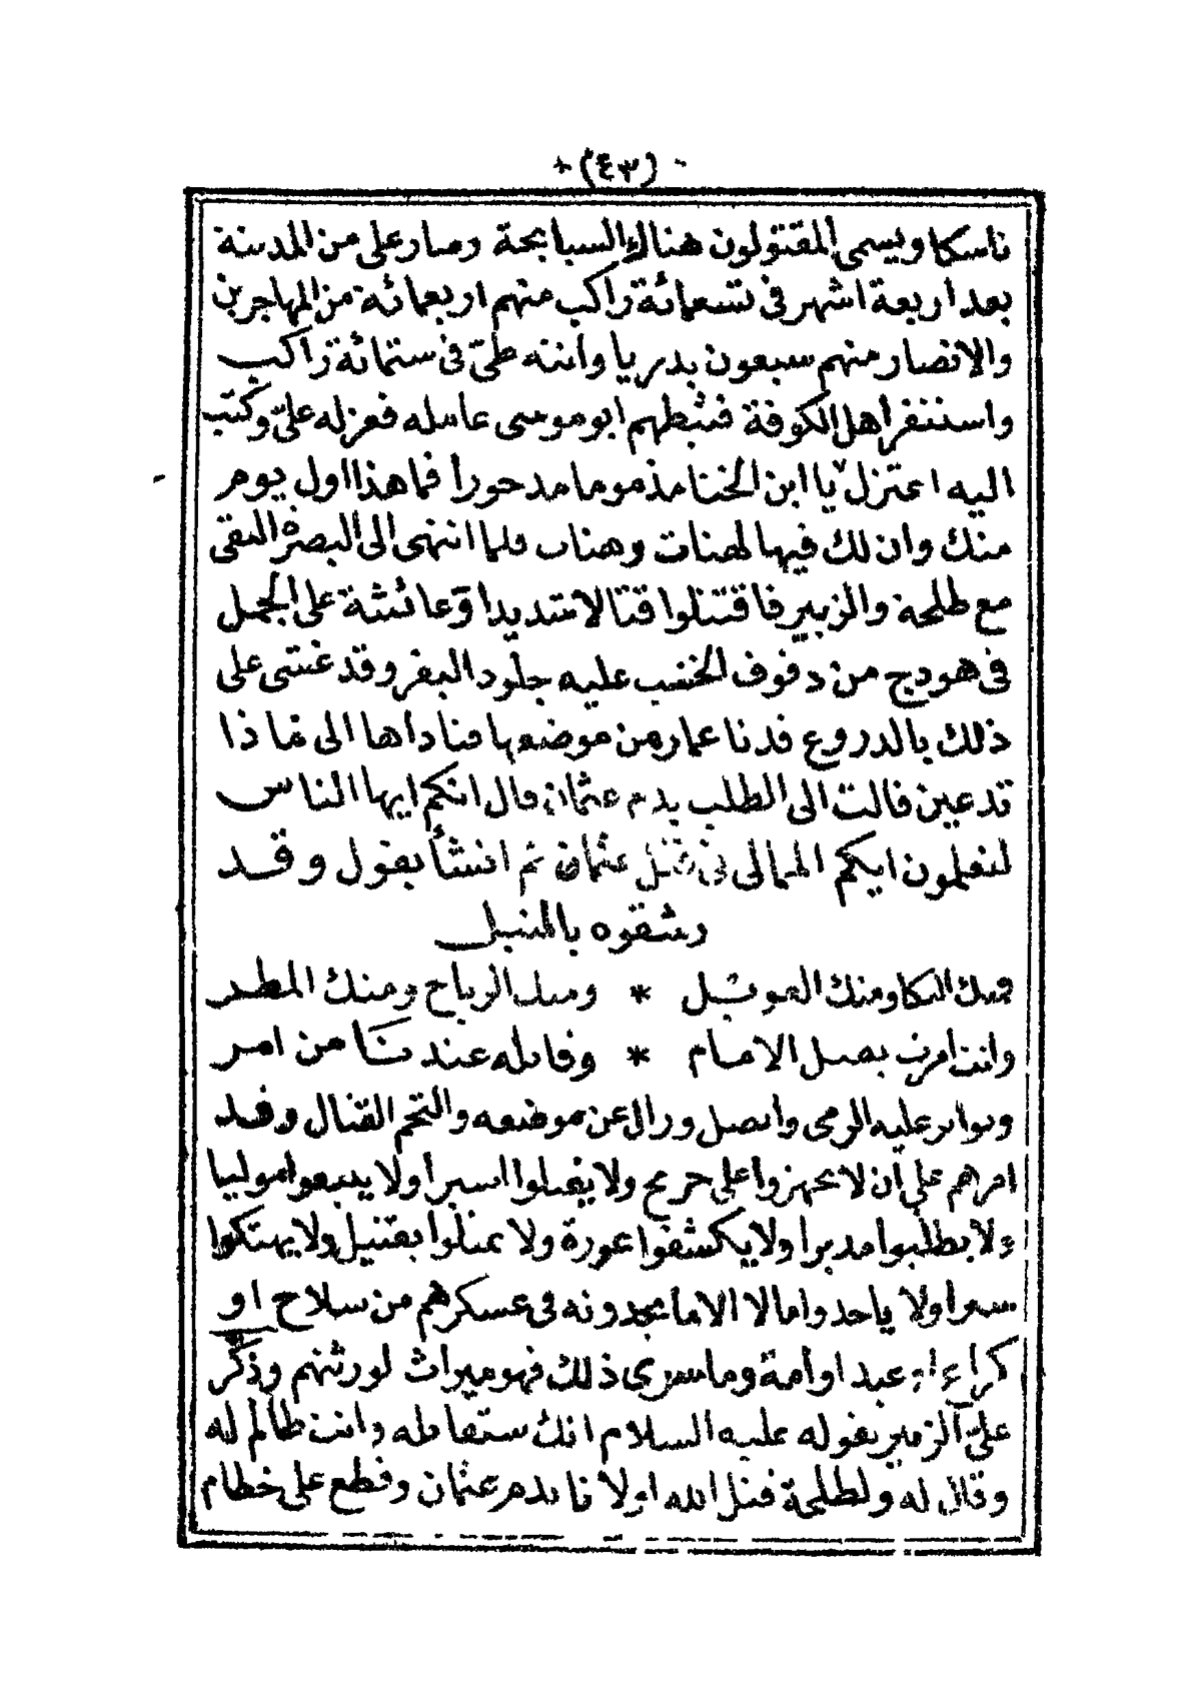 (٤٣)
ناسكا ويسمى المقتولون هناك السبابجة وصار على من المدينة
بعد اربعة اشهر فى تسعمائة راكب منهم اربعمائة من المهاجرين
والانصار منهم سبعون بدريا واتته طىّ فى ستمائة راكب
واستنفر أهل الكوفة فثبطهم ابو موسى عامله فعزله علىّ وكتب
اليه اعتزل يا ابن الخنا مذموما مدحورا فما هذا اول يوم
منك وان لك فيها لهنات وهنات فلما انتهى الى البصرة التقى
مع طلحة والزبير فاقتتلوا قتالا شديدا وعائشة على الجمل
فى هودج من دفوف الخشب عليه جلود البقر وقد غشى على
ذلك بالدروع فدنا عمار من موضعها فناداها الى ماذا
تدعين قالت الى الطلب بدم عثمان قال انكم ايها الناس
لتعلمون ايكم الممالى فى قتل عثمان ثم انشأ يقول وقد
رشقوه بالنبل
فمنك البكا ومنك العويل * ومنك الرياح ومنك المطر
وانت امرت بقتل الامام * وقاتله عندنا من امر
وتواتر عليه الرمى واتصل وزال عن موضعه والتحم القتال وقد
امرهم على أن لا يجهزوا على جريح ولا يقتلوا اسيرا ولا يتبعوا موليا
ولا يطلبوا مدبرا ولا يكشفوا عورة ولا يمثلوا بقتيل ولا يهتكوا
سترا ولا ياخذوا مالا الا ما يجدونه فى عسكرهم من سلاح او
كراع او عبد او أمة وما سوى ذلك فهو ميراث لورثتهم وذكّر
علىّ الزبير بقوله عليه السلام انك ستقاتله وانت ظالم له
وقال له ولطلحة قتل الله اولانا بدم عثمان وقطع على خطام